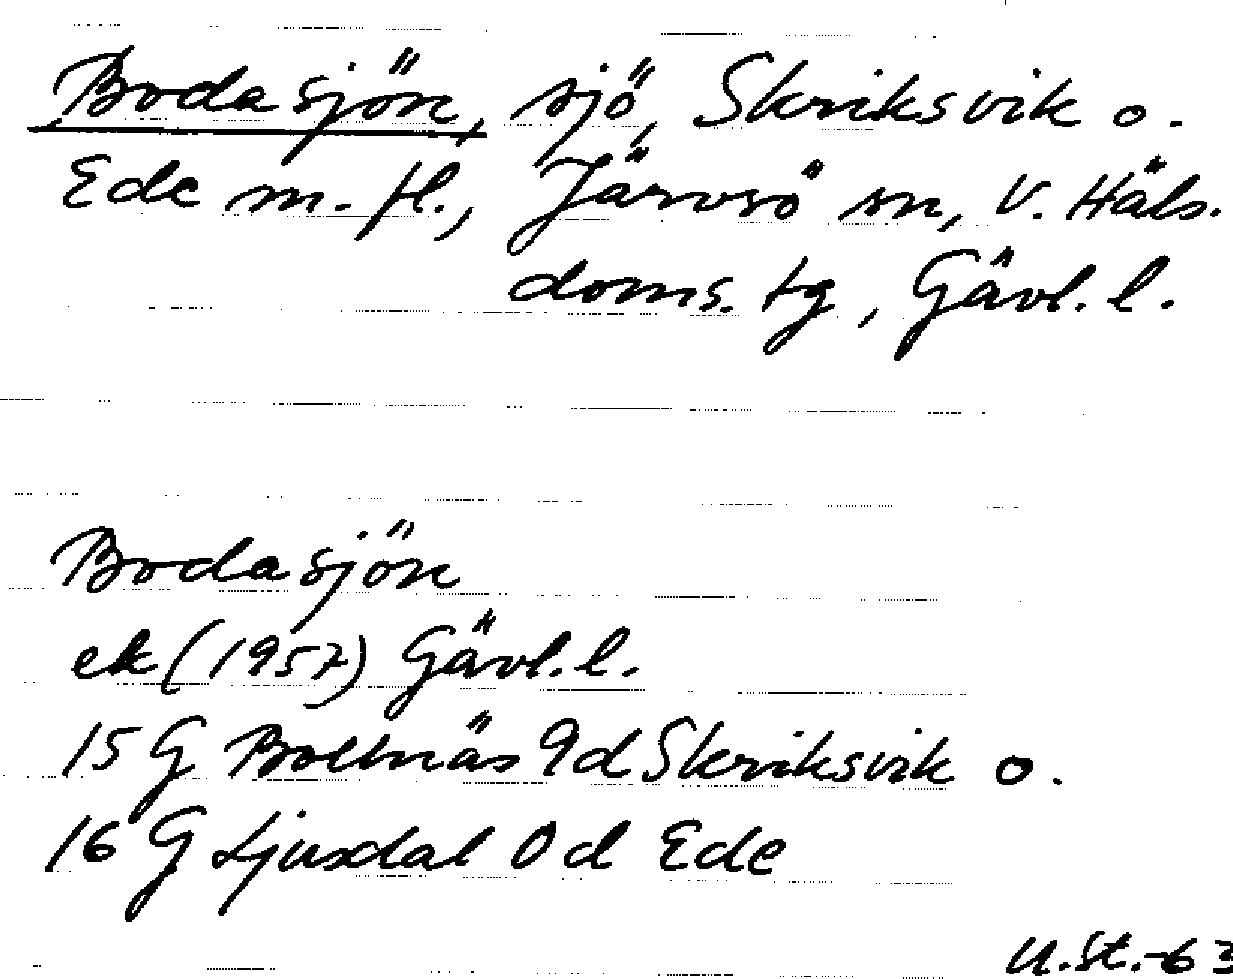 Bodasjön, sjö, Skriksvik o.
Ede m. fl., Järvsö sn, V. Häls.
doms. tg, Gävl. l.
Bodasjön
ek (1957) Gävl. l.
15 G Bollnäs 9d Skriksvik o.
16 G Ljusdal 0d Ede
U.St.-63